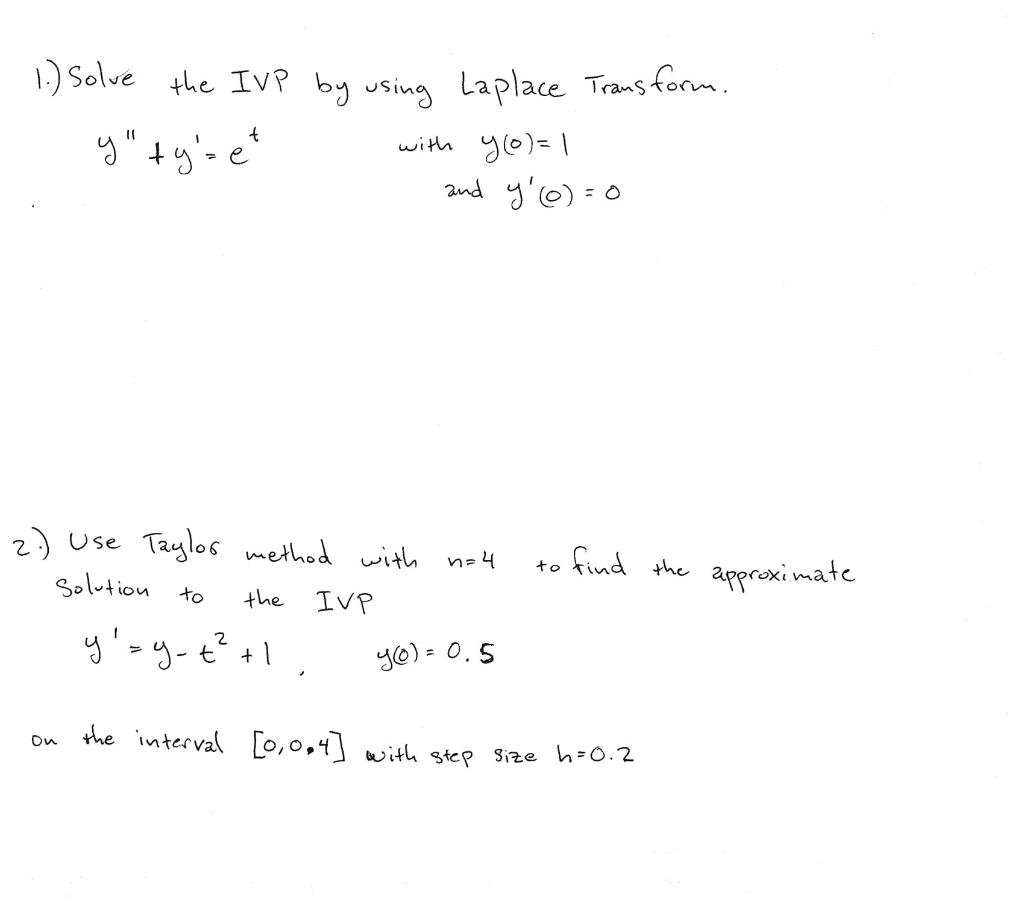 1.) Solve the IVP by using Laplace Transform.
y" + y' = e^t with y(0) = 1
and y'(0) = 0
2.) Use Taylor method with n=4 to find the approximate
Solution to the IVP
y' = y - t² + 1, y(0) = 0.5
on the interval [0,0.4] with step size h=0.2